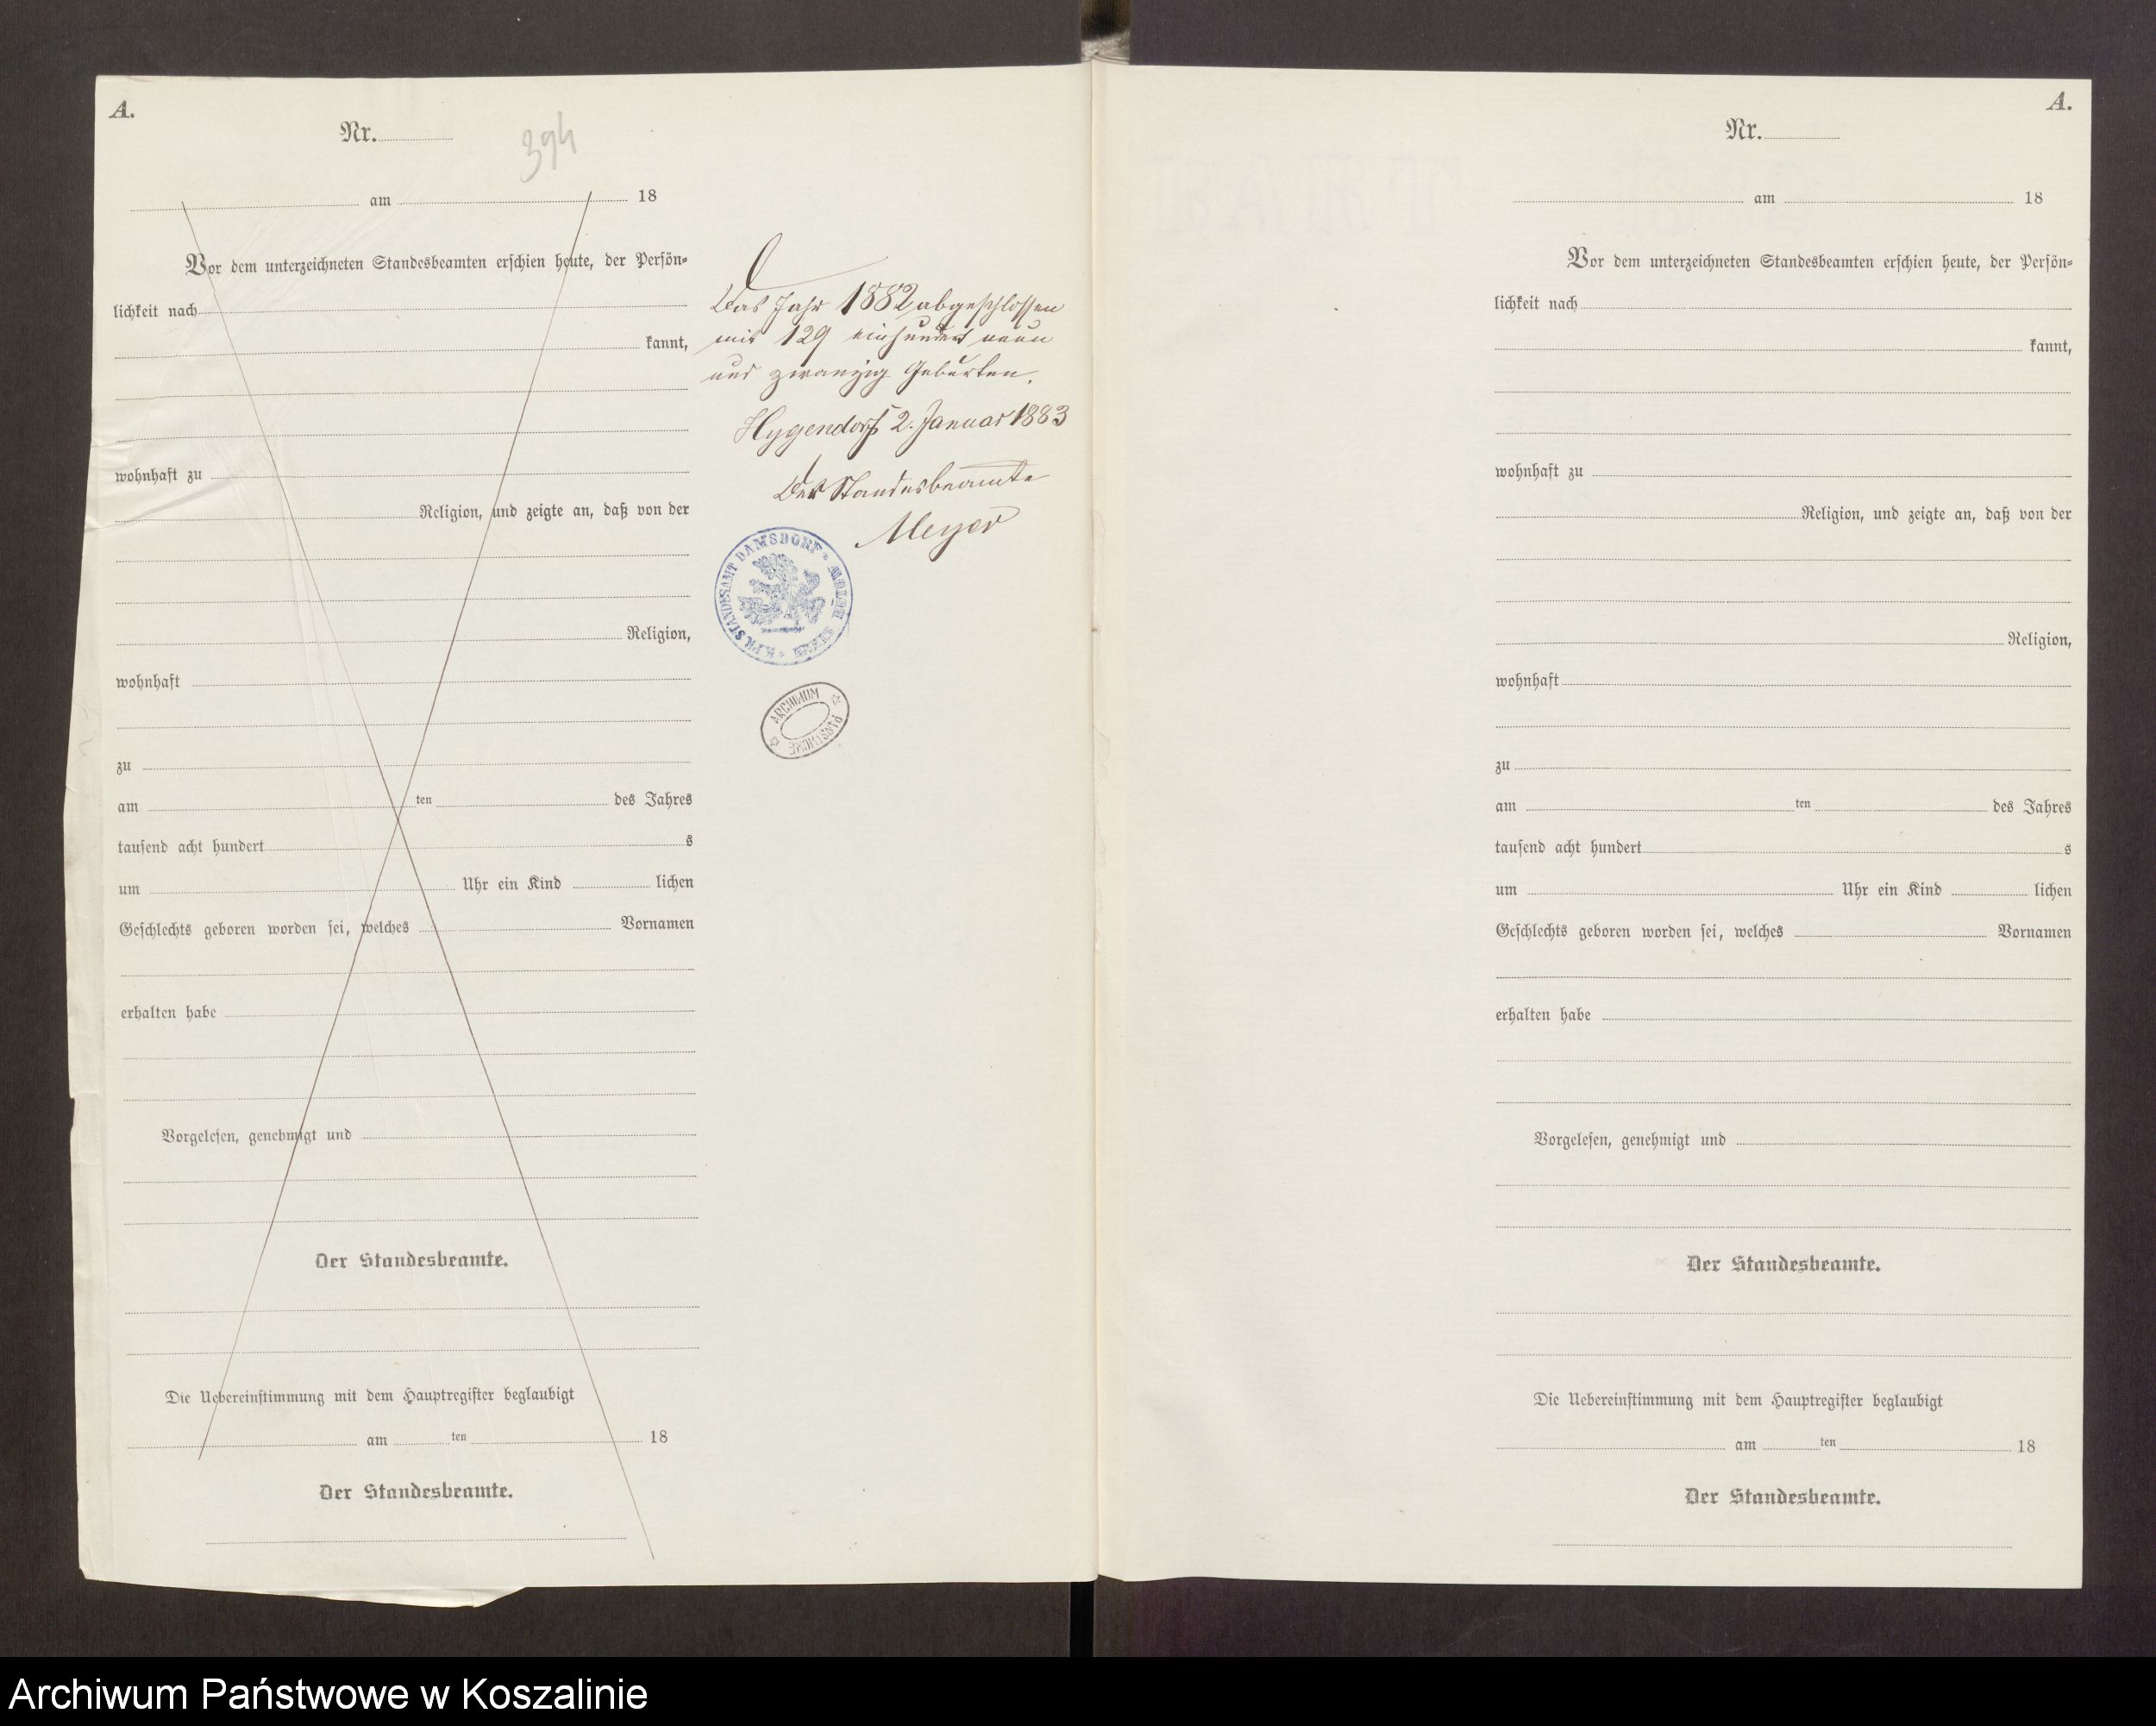 A.
Nr.
394
am 18
Vor dem unterzeichneten Standesbeamten erschien heute, der Persön-
lichkeit nach
kannt,
wohnhaft zu
Religion, und zeigte an, daß von der
Religion,
wohnhaft
zu
am ten des Jahres
tausend acht hundert s
um Uhr ein Kind lichen
Geschlechts geboren worden sei, welches Vornamen
erhalten habe
Vorgelesen, genehmigt und
Der Standesbeamte.
Die Uebereinstimmung mit dem Hauptregister beglaubigt
am ten 18
Der Standesbeamte.
Das Jahr 1882 abgeschlossen
mit 129 einhundert neun
und zwanzig Geburten.
Hygendorf 2. Januar 1883
Der Standesbeamte
Meyer
K. PR. STANDESAMT DAMSDORF
KREIS BÜTOW
ARCHIWUM
PAŃSTWOWE
A.
Nr.
am 18
Vor dem unterzeichneten Standesbeamten erschien heute, der Persön-
lichkeit nach
kannt,
wohnhaft zu
Religion, und zeigte an, daß von der
Religion,
wohnhaft
zu
am ten des Jahres
tausend acht hundert s
um Uhr ein Kind lichen
Geschlechts geboren worden sei, welches Vornamen
erhalten habe
Vorgelesen, genehmigt und
Der Standesbeamte.
Die Uebereinstimmung mit dem Hauptregister beglaubigt
am ten 18
Der Standesbeamte.
Archiwum Państwowe w Koszalinie